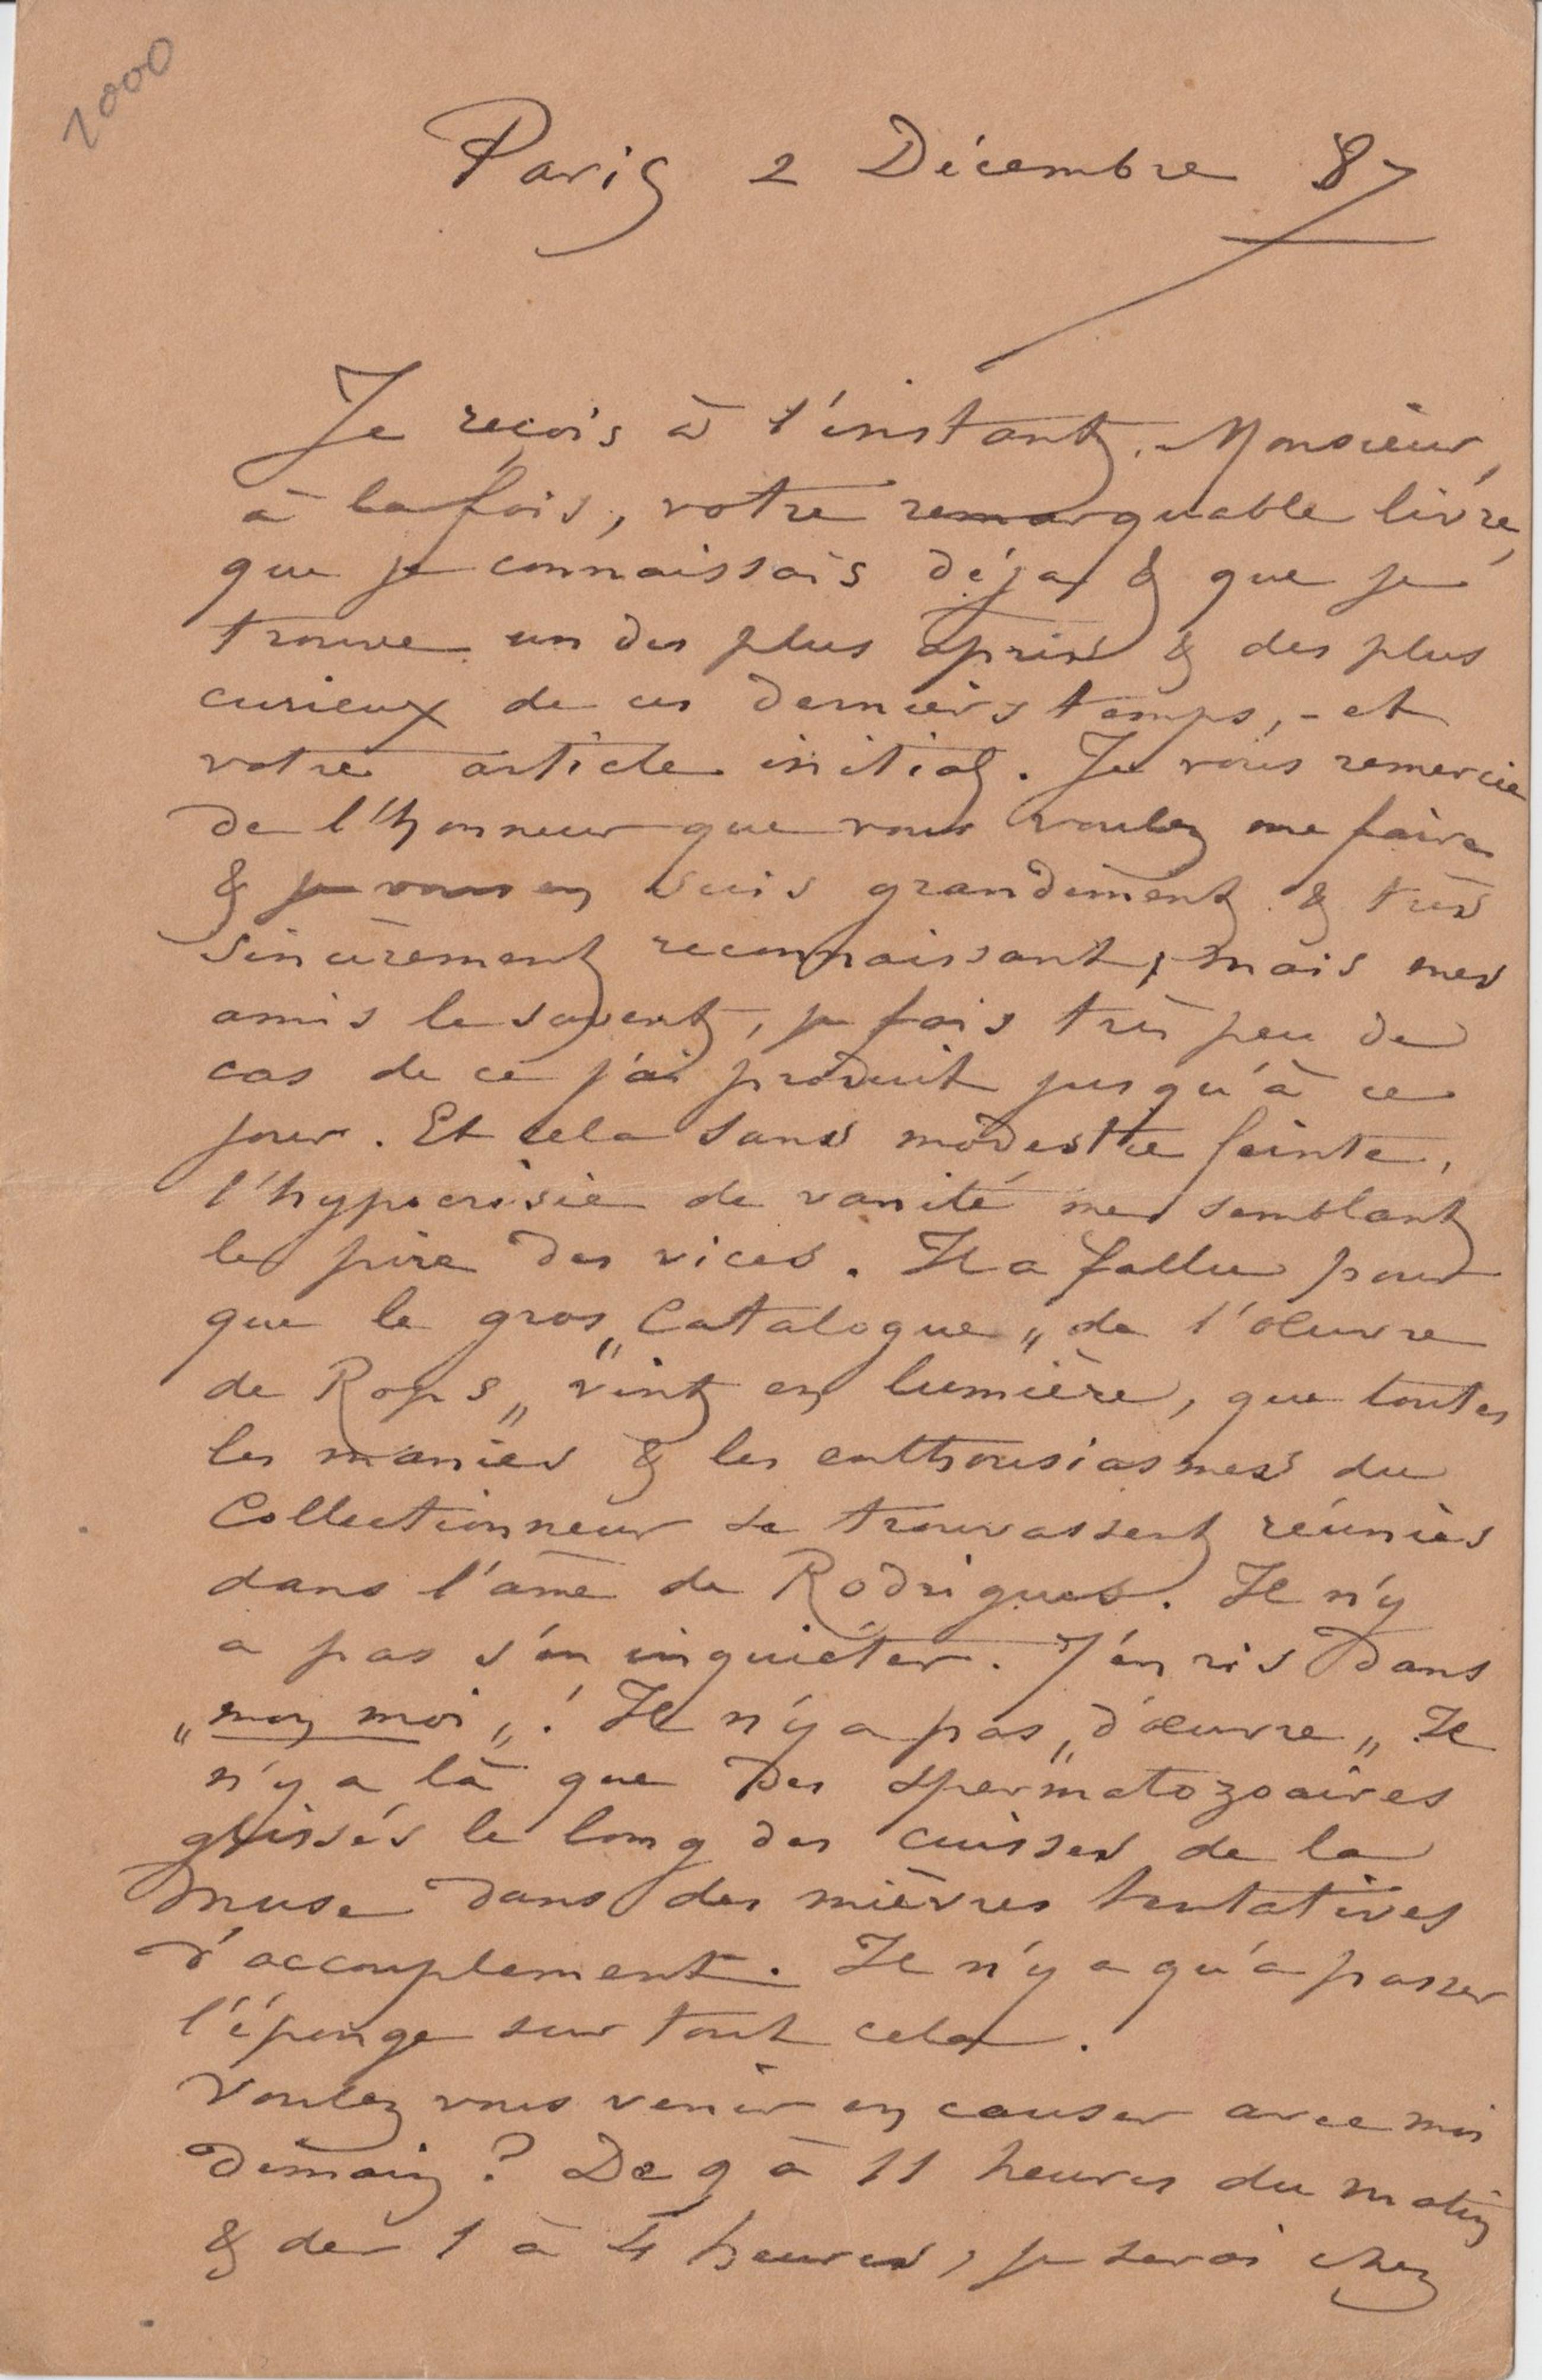 1000
Paris 2 Décembre 87
Je reçois à l'instant, Monsieur,
à la fois, votre remarquable livre,
que je connaissais déja, & que je
trouve un des plus âpres & des plus
curieux de ces derniers temps, - et
votre article initial. Je vous remercie
de l'honneur que vous voulez me faire
& je vous en suis grandement & très
sincèrement reconnaissant, mais mes
amis le savent, je fais très peu de
cas de ce j'ai produit jusqu'à ce
jour. Et cela sans modestie feinte,
l'hypocrisie de vanité me semblant
le pire des vices. Il a fallu pour
que le gros „Catalogue„ de l'œuvre
de Rops„ vint en lumière, que toutes
les manies & les enthousiasmes du
Collectionneur se trouvassent réunies
dans l'ame de Rodrigues. Il n'y
a pas s'en inquiéter. J'en ris dans
„mon moi„! Il n'y a pas „d'œuvre„ Il
n'y a là que des spermatozoaires
glissés le long des cuisses de la
Muse dans des mièvres tentatives
d'accouplement. Il n'y a qu'à passer
l'éponge sur tout cela.
Voulez vous venir en causer avec moi
demain ? De 9 à 11 heures du matin
& de 1 à 4 heures, je serai chez